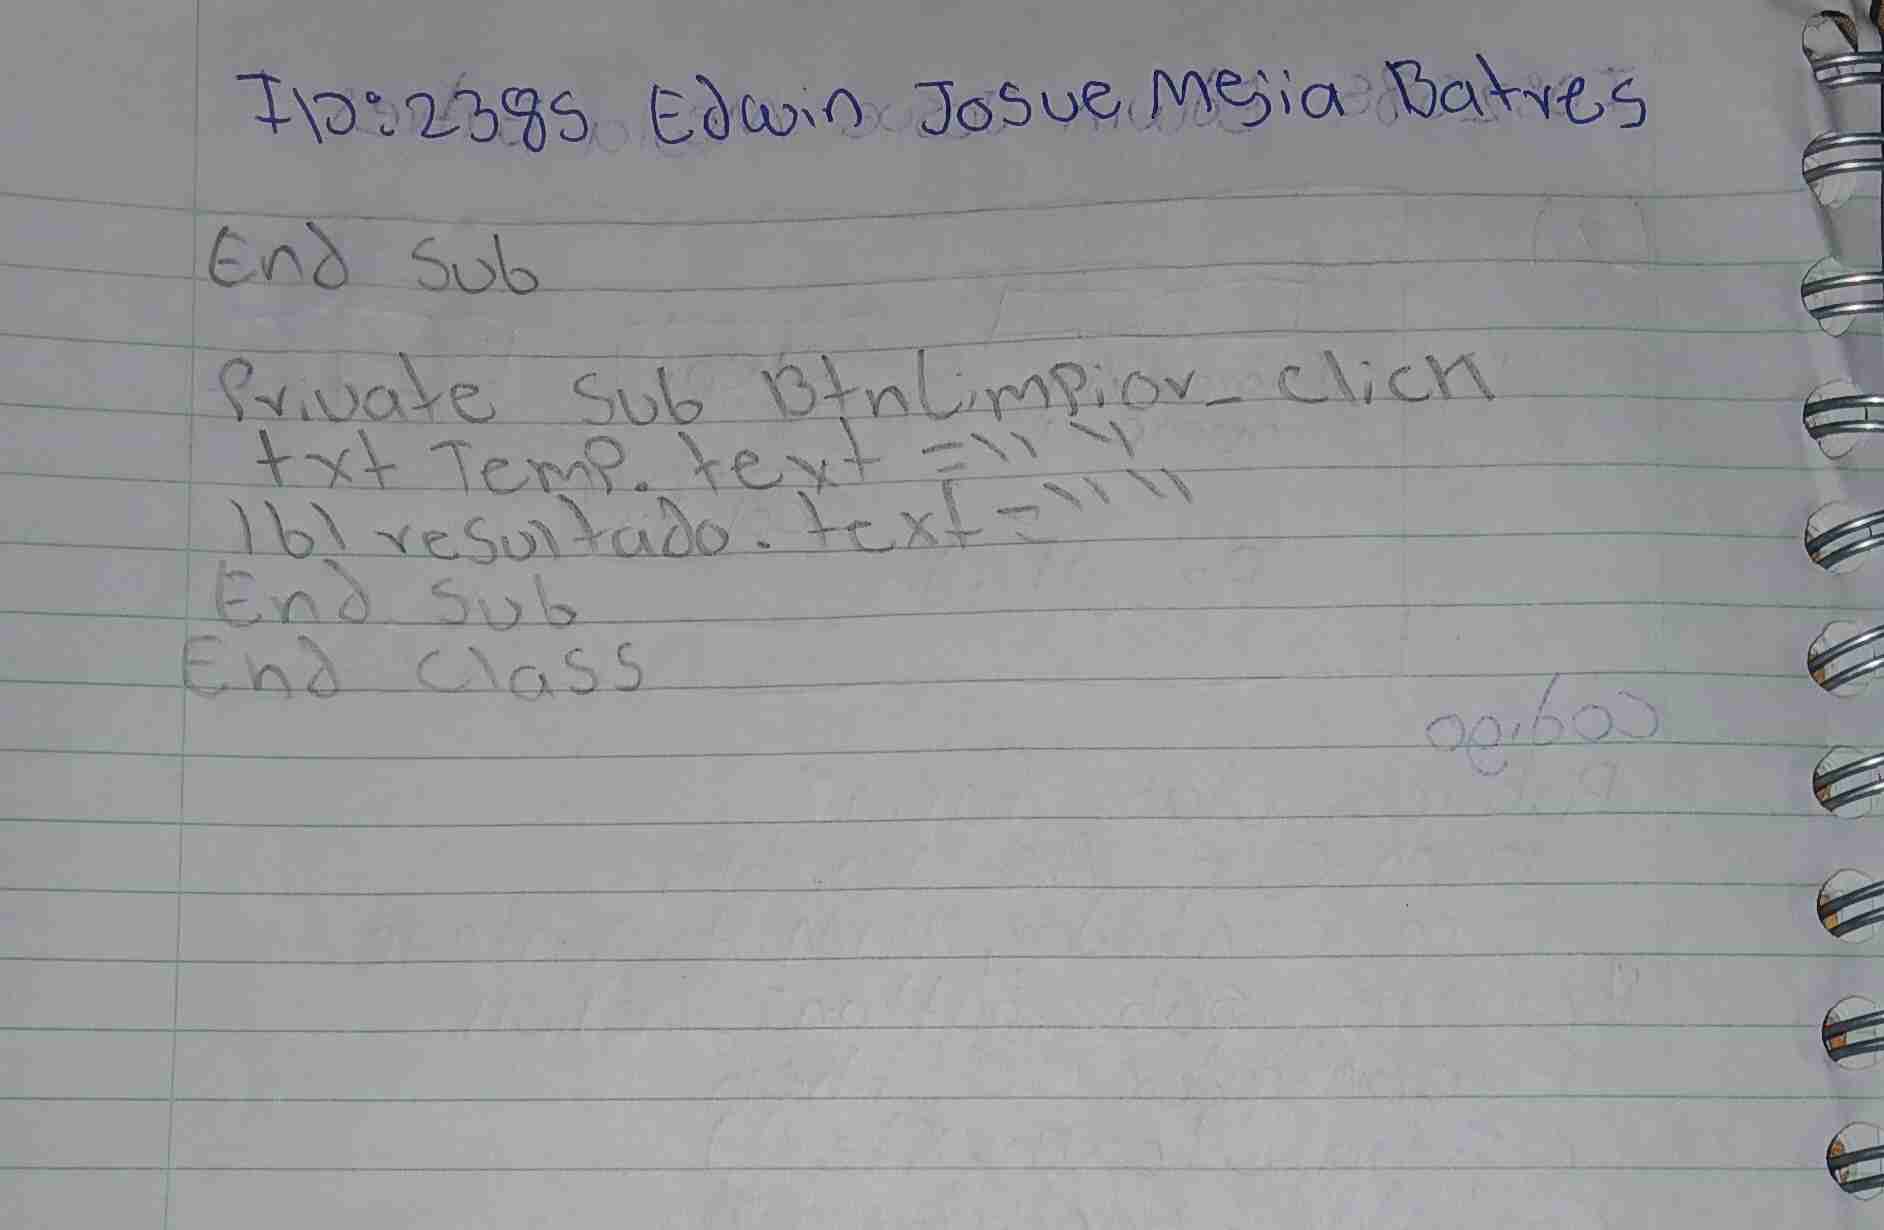 ID:2385 Edwin Josue Mejia Batres
End Sub
Private Sub BtnLimpiar_click
txt Temp. text = ""
lbl resultado. text = ""
End Sub
End Class